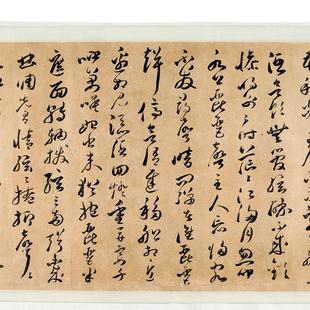 酒欲飲無管絃醉不成歡
慘將別別時茫茫江浸月忽聞
水上琵琶聲主人忘歸客
不發尋聲暗問彈者誰琵琶
聲停欲語遲移船相近
邀相見添酒回燈重開宴千
呼萬喚始出來猶抱琵琶半
遮面轉軸撥絃三兩聲未成
曲調先有情絃絃掩抑聲聲